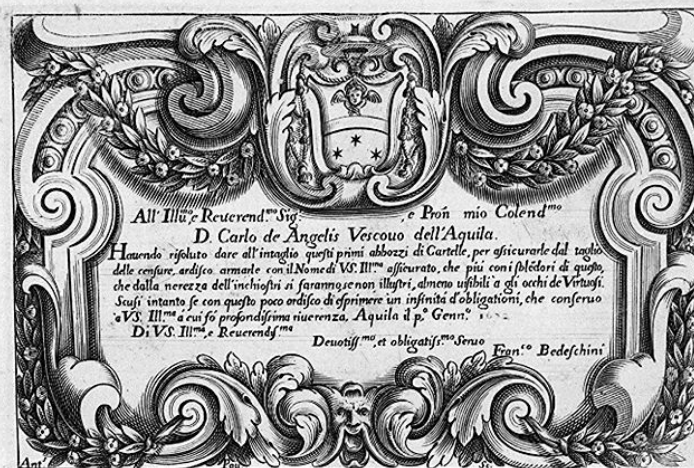 All' Illu.mo, e Reuerend.mo Sig: , e Prōn mio Colend.mo
D. Carlo de Angelis Vescouo dell'Aquila.
Hauendo risoluto dare all'intaglio questi primi abbozzi di Cartelle, per assicurarle dal taglio
delle censure, ardisco armarle con il Nome di VS. Ill.ma assicurato, che più con i splēdori di questo,
che dalla nerezza dell'inchiostri si faranno, se non illustri, almeno uisibili a gli occhi de Virtuosi.
Scusi intanto se con questo poco ardisco di esprimere un' infinità d'obligationi, che conseruo
a VS. Ill.ma a cui fò profondissima riuerenza, Aquila il p.o Genn.o
Di VS. Ill.ma, e Reuerendiss.ma
Deuotiss.mo, et obligatiss.mo Seruo
Fran.co Bedeschini
Ant.